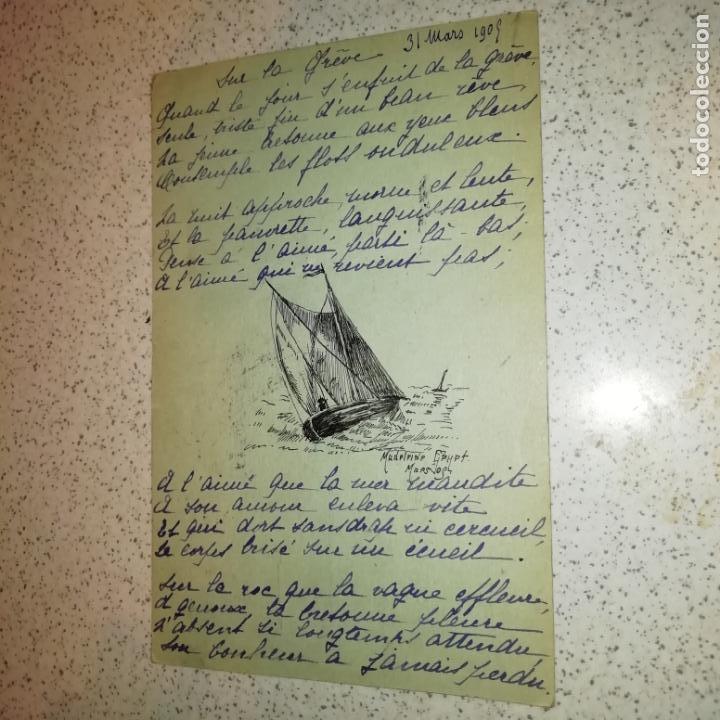 31 Mars 1909
Sur la Grève
Quand le jour s'enfuit de la grève,
seule, triste fin d'un beau rêve,
La jeune bretonne aux yeux bleus
Contemple les flots onduleux.
La nuit approche, morne et lente,
Et la pauvrette, languissante,
Pense à l'aimé, parti là-bas,
A l'aimé qui ne revient pas;
Madeleine
Mars
A l'aimé que la mer maudite
A son amour enleva vite
Et qui dort sans drap ni cercueil,
Le corps brisé sur un écueil.
Sur le roc que la vague effleure,
A genoux, la bretonne pleure
L'absent si longtemps attendu
Son bonheur à jamais perdu.
todocoleccion.net